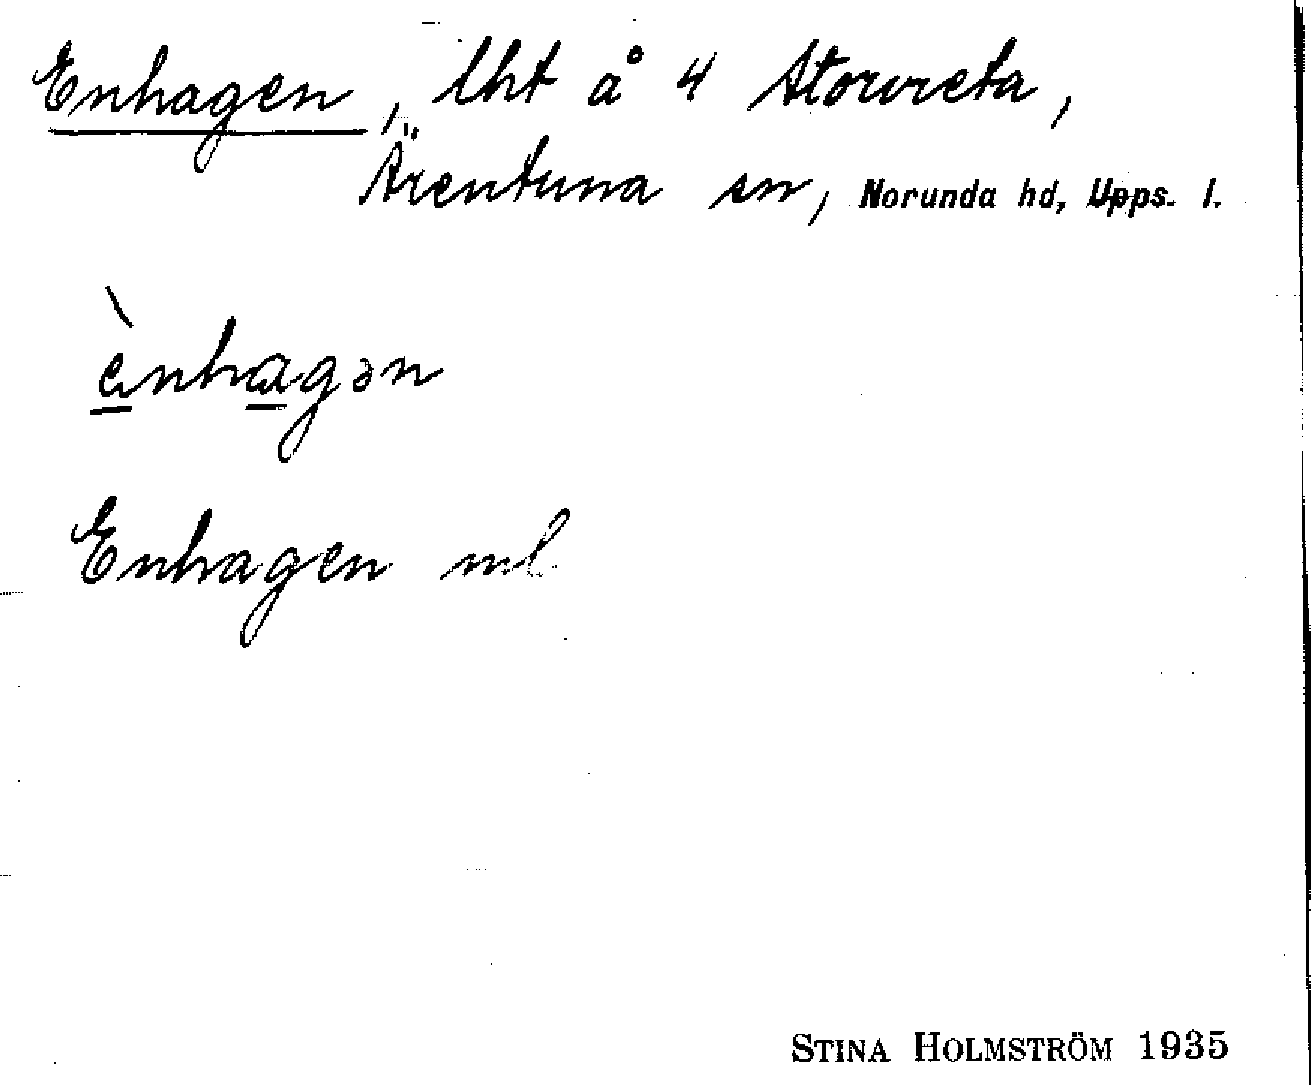 Enhagen, lht å 4 Storvreta,
Ärentuna sn, Norunda hd, Upps. l.
ènhagən
Enhagen ml
STINA HOLMSTRÖM 1935